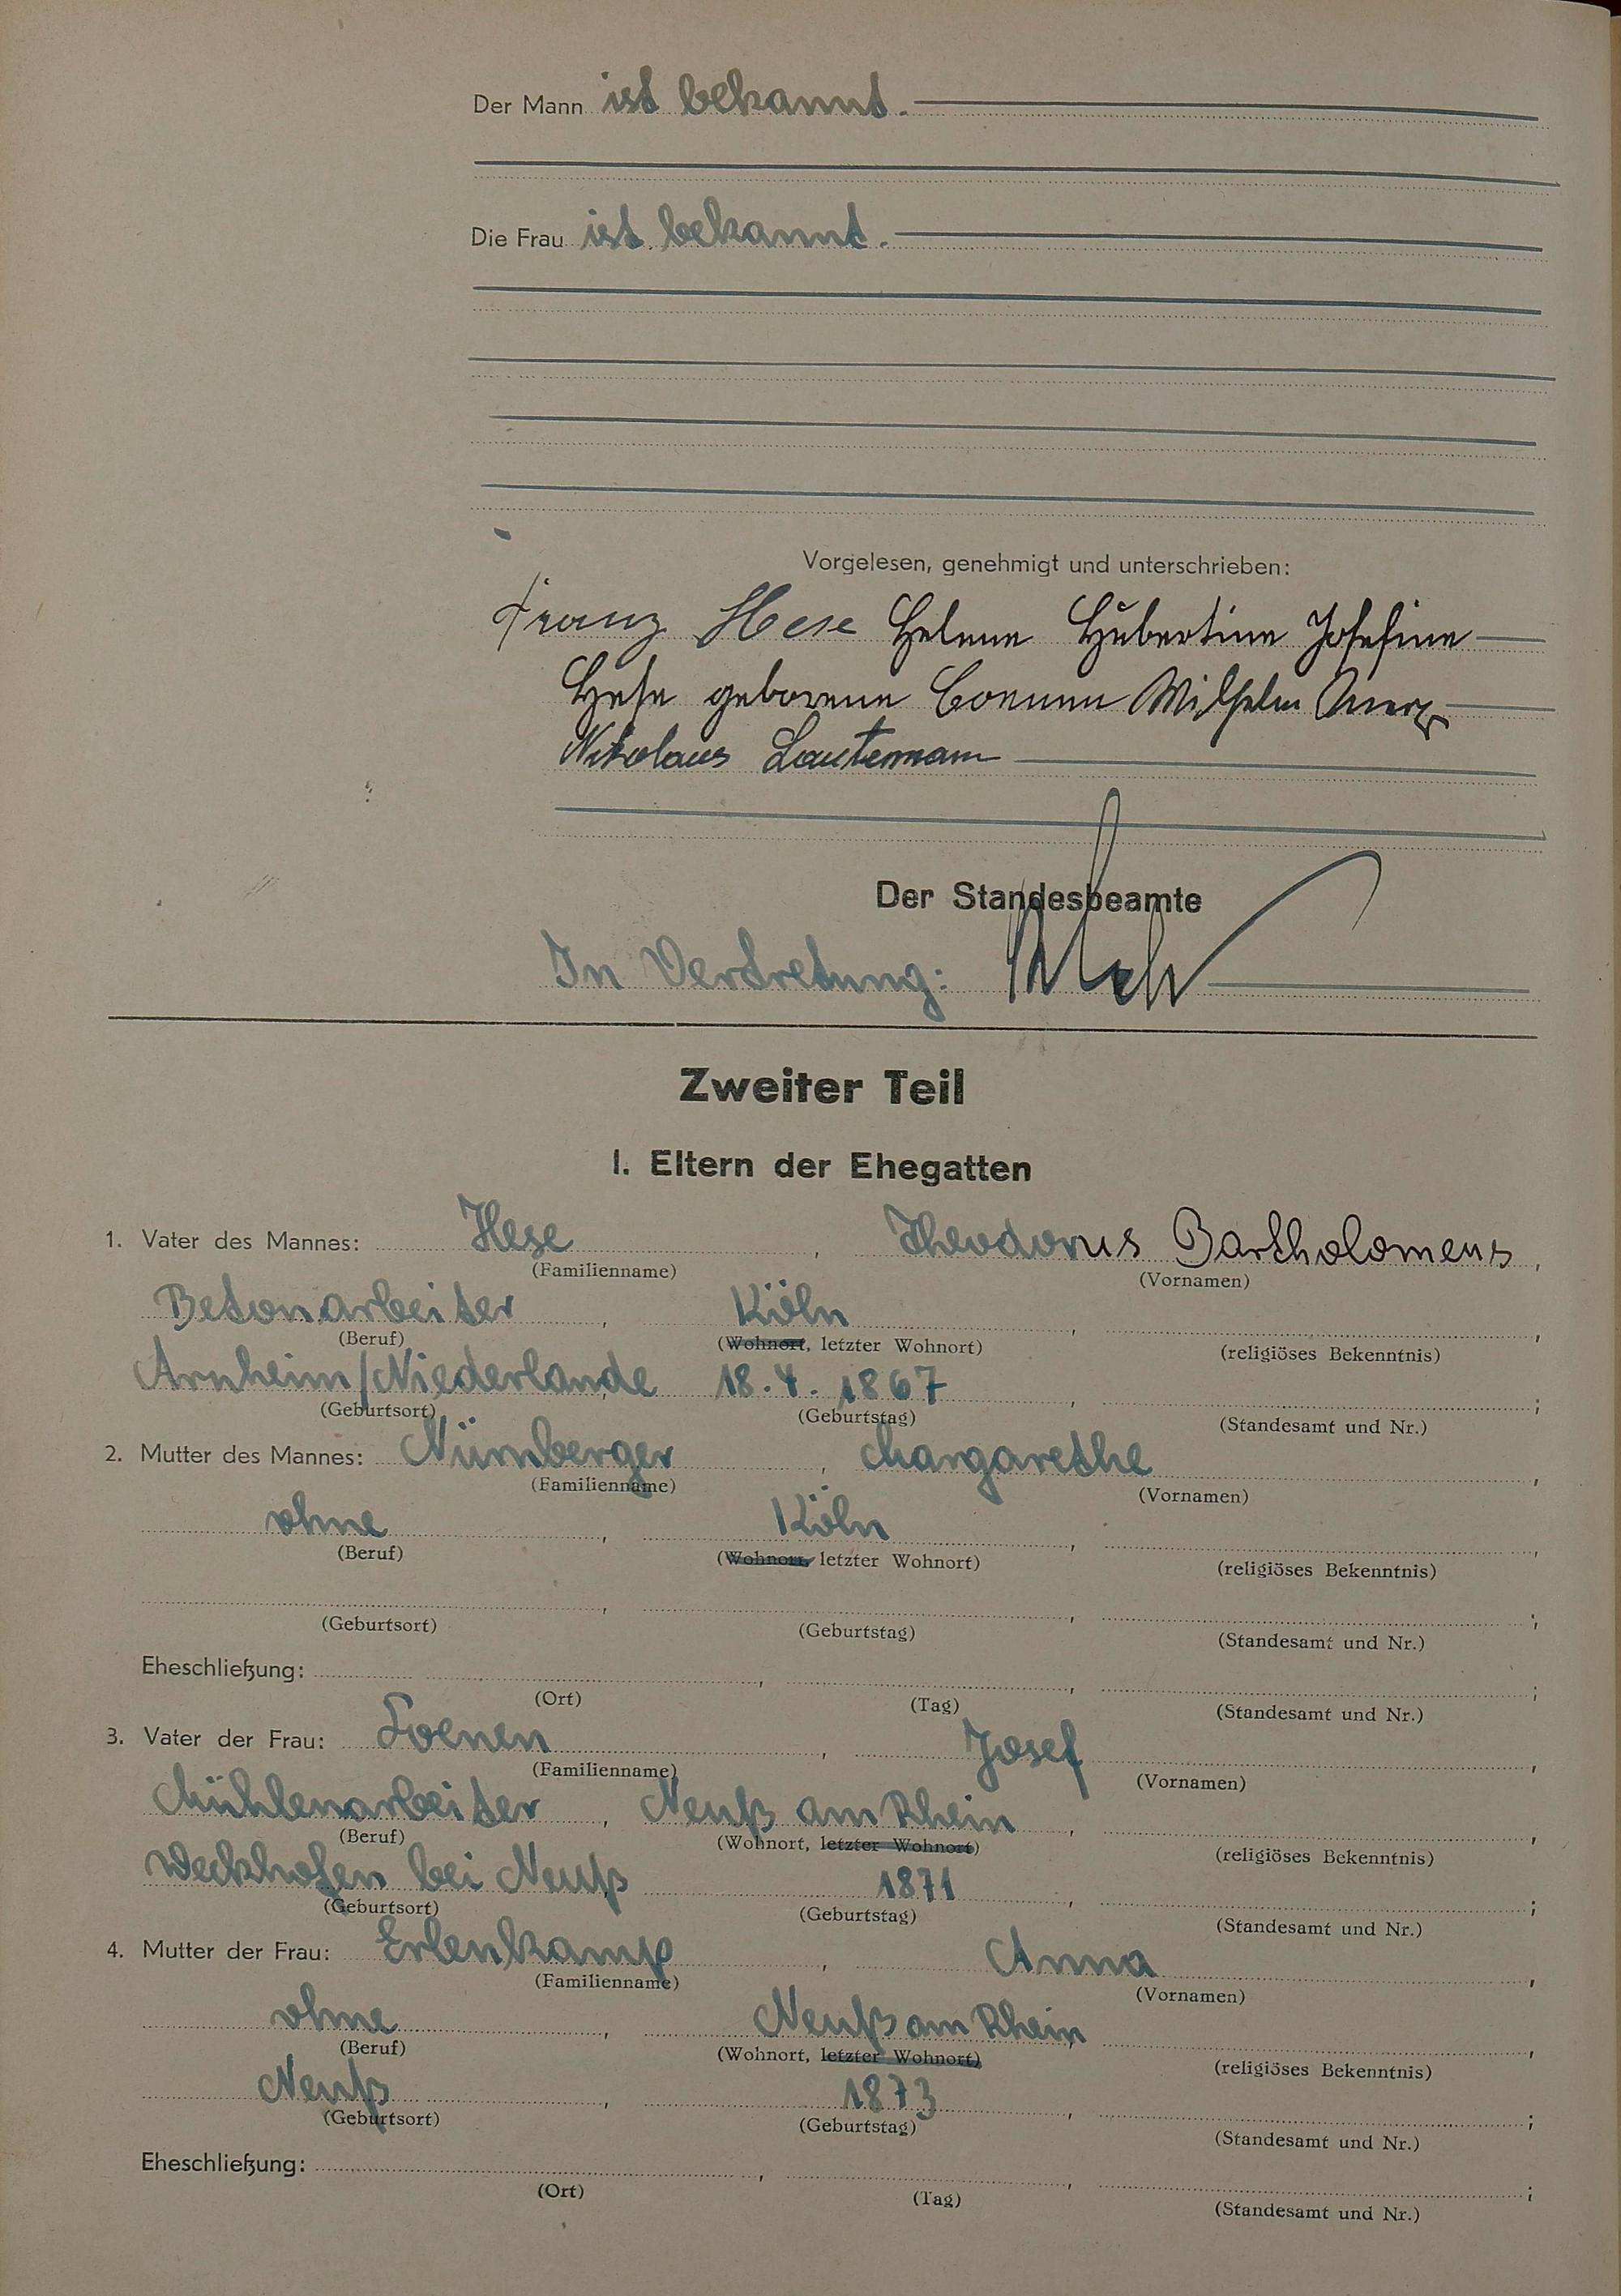 Der Mann ist bekannt.
Die Frau ist bekannt.
Vorgelesen, genehmigt und unterschrieben:
Franz Hese Helene Hubertine Josefine
Hese geborene Coenen Wilhelm
Nikolaus Lautermann
Der Standesbeamte
In Vertretung:
Zweiter Teil
I. Eltern der Ehegatten
1. Vater des Mannes: Hese, Theodorus Bartholomeus,
(Familienname) (Vornamen)
Betonarbeiter, Köln, ,
(Beruf) (Wohnort, letzter Wohnort) (religiöses Bekenntnis)
Arnheim/Niederlande, 18.4.1867, ;
(Geburtsort) (Geburtstag) (Standesamt und Nr.)
2. Mutter des Mannes: Nürnberger, Margarethe,
(Familienname) (Vornamen)
ohne, Köln, ,
(Beruf) (Wohnort, letzter Wohnort) (religiöses Bekenntnis)
(Geburtsort) (Geburtstag) (Standesamt und Nr.)
Eheschließung:
(Ort) (Tag) (Standesamt und Nr.)
3. Vater der Frau: Coenen, Josef,
(Familienname) (Vornamen)
Mühlenarbeiter, Neuß am Rhein, ,
(Beruf) (Wohnort, letzter Wohnort) (religiöses Bekenntnis)
Weckhofen bei Neuß, 1871, ;
(Geburtsort) (Geburtstag) (Standesamt und Nr.)
4. Mutter der Frau: Erlenkamp, Anna,
(Familienname) (Vornamen)
ohne, Neuß am Rhein, ,
(Beruf) (Wohnort, letzter Wohnort) (religiöses Bekenntnis)
Neuß, 1873, ;
(Geburtsort) (Geburtstag) (Standesamt und Nr.)
Eheschließung:
(Ort) (Tag) (Standesamt und Nr.)